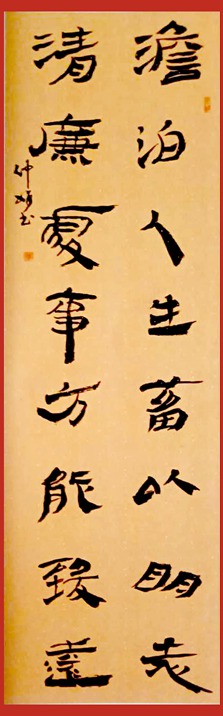 澹泊人生蓄以明志
清廉處事方能致遠
仲㛃书